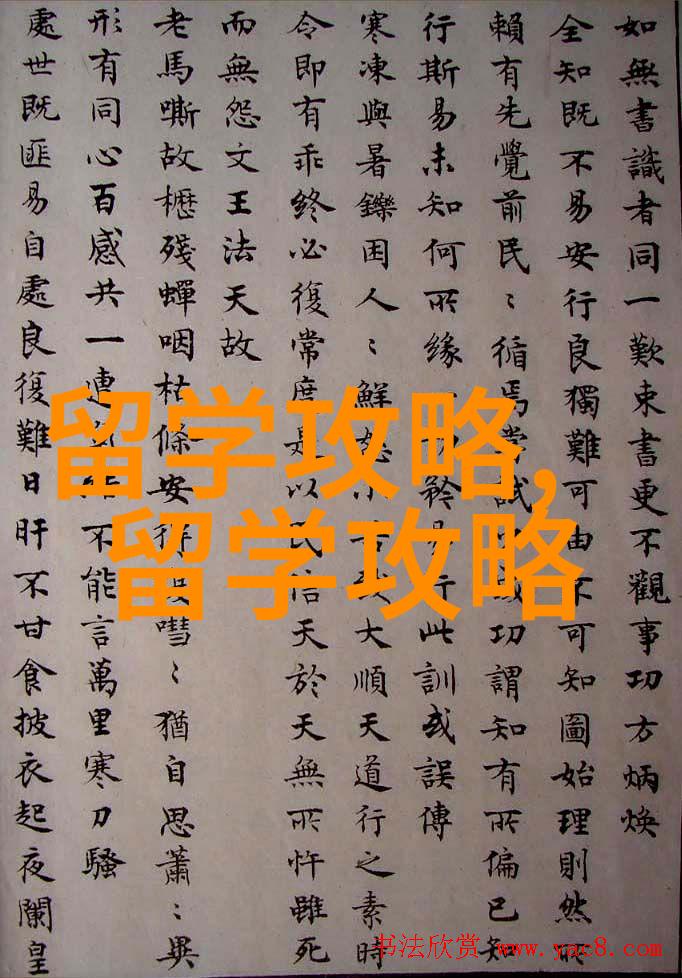 如無書識者同一歎束書更不觀事功方炳煥
全知既不易安行良獨難可由不可知圖始理則然所
賴有先覺前民〻循焉試功謂知有所偏已知
行斯易未知何所緣易行此訓或誤傳
寒凍與暑鑠困人〻鮮大順天道行之素時
令即有乖終必復常度是以民信天於天無所忤雖死
而無怨文王法天故
老馬嘶故櫪殘蟬咽枯條安嘒〻猶自思蕭〻異
形有同心百感共一連不能言萬里寒刀騷
處世既匪易自處良復難日旰不甘食披衣起夜闌皇
留学攻略,
留学攻略
书法欣赏 www.yac8.com